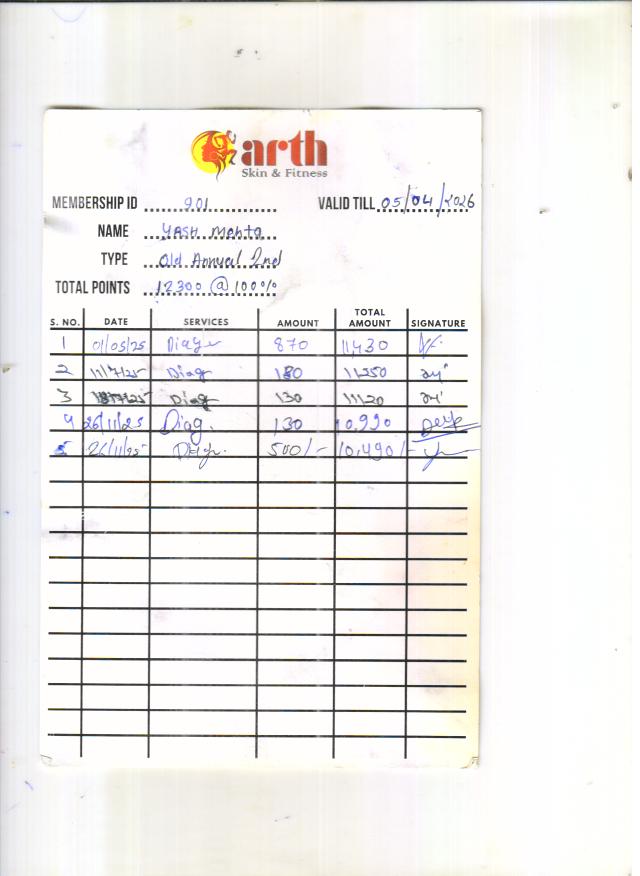 arth
Skin & Fitness
MEMBERSHIP ID 901 VALID TILL 05/04/2026
NAME YASH Mehta
TYPE Old Annual 2nd
TOTAL POINTS 12300 @ 100%
S. NO. DATE SERVICES AMOUNT TOTAL AMOUNT SIGNATURE
1 01/05/25 870 11,430
2 11/7/25 Diag 180 11250
3 Diag 130 11120
4 26/11/25 Diag. 130 10,990
5 26/11/25 500/- 10,490/-